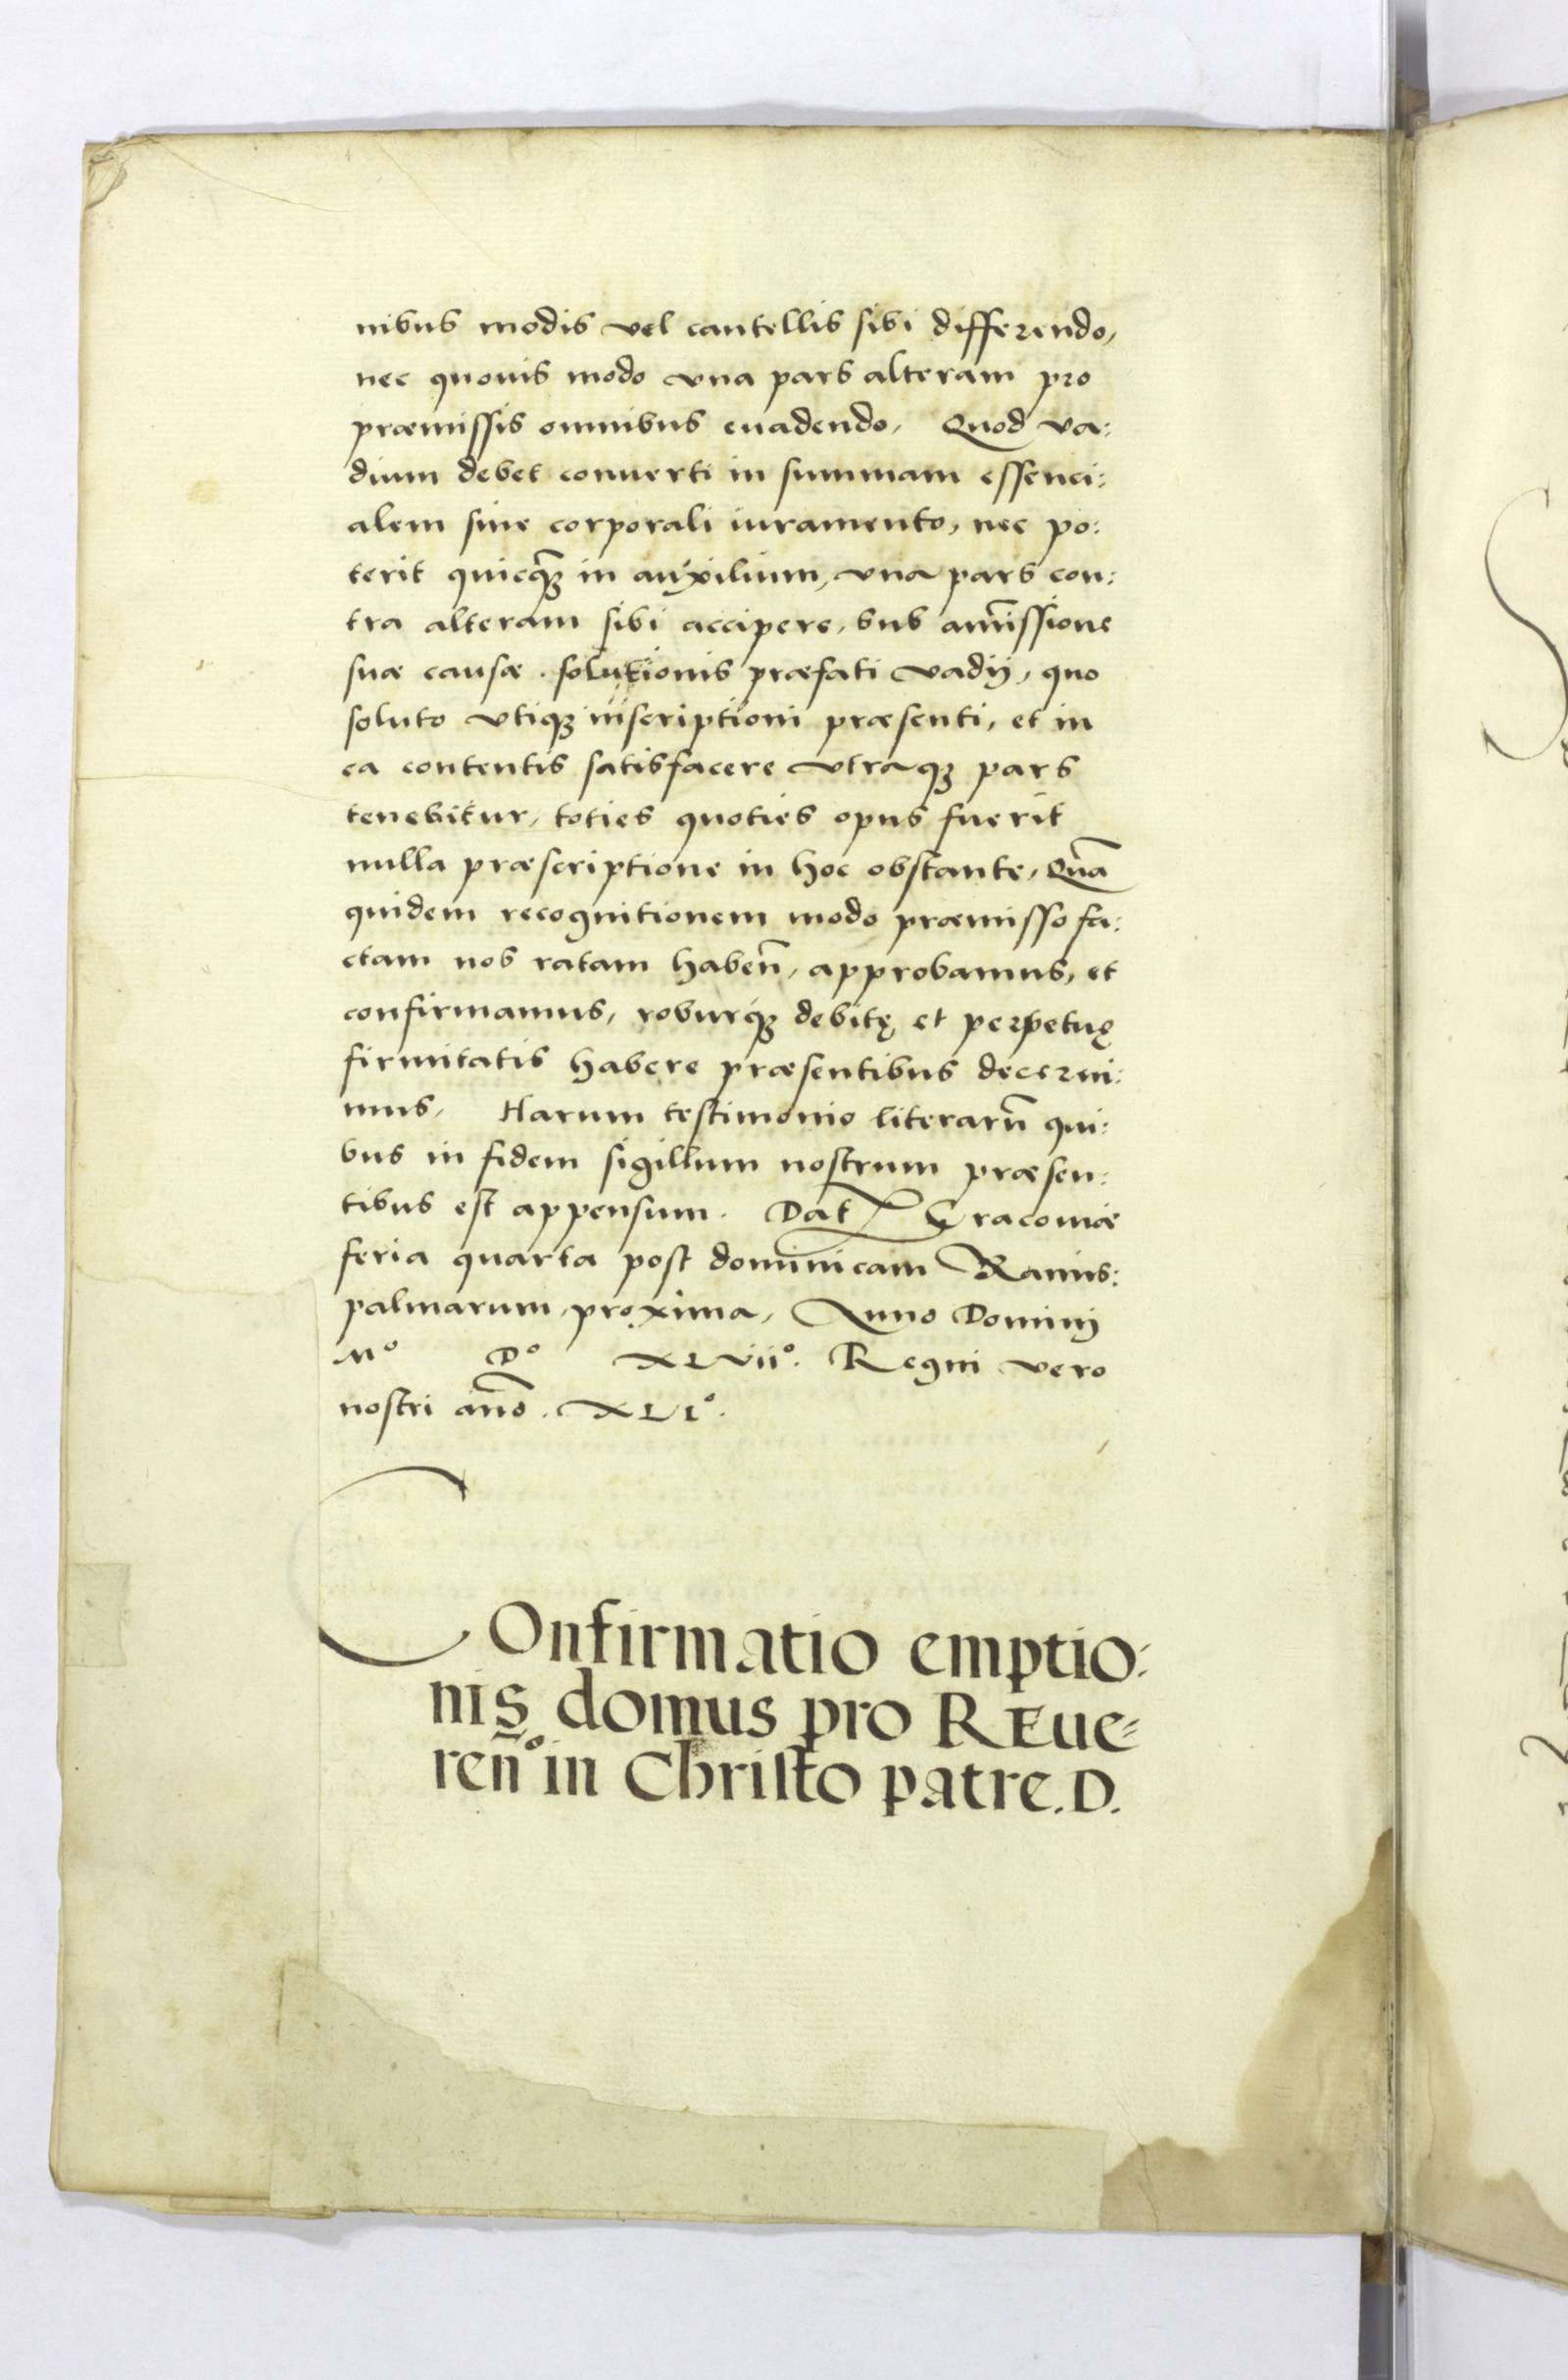 nibus modis vel cautellis sibi differendo,
nec quouis modo vna pars alteram pro
præmissis omnibus euadendo, Quod va:
dium debet conuerti in summam essenci:
alem sine corporali iuramento, nec po:
terit quicq̃ꝫ in auxilium, vna pars con:
tra alteram sibi accipere, sub am̃issione
suæ causæ . solutionis præfati vadij, quo
soluto vtiqꝫ inscriptioni præsenti, et in
ea contentis satisfacere vtraqꝫ pars
tenebitur, toties quoties opus fuerit
nulla præscriptione in hoc obstante, Quã
quidem recognitionem modo præmisso fa:
ctam nos ratam habeñ, approbamus, et
confirmamus, roburqꝫ debitę et perpetuę
firmitatis habere præsentibus decerni:
mus. Harum testimonio literarũ qui:
bus in fidem sigillum nostrum præsen:
tibus est appensum. Dat Cracouiæ
feria quarta post dominicam Ramis:
palmarum, proxima, Anno Domini
Mº Dº XLviiº. Regni vero
nostri añno. XLIº.
COnfirmatio emptio:
nis domus pro REue=
reñº in Christo patre. D.